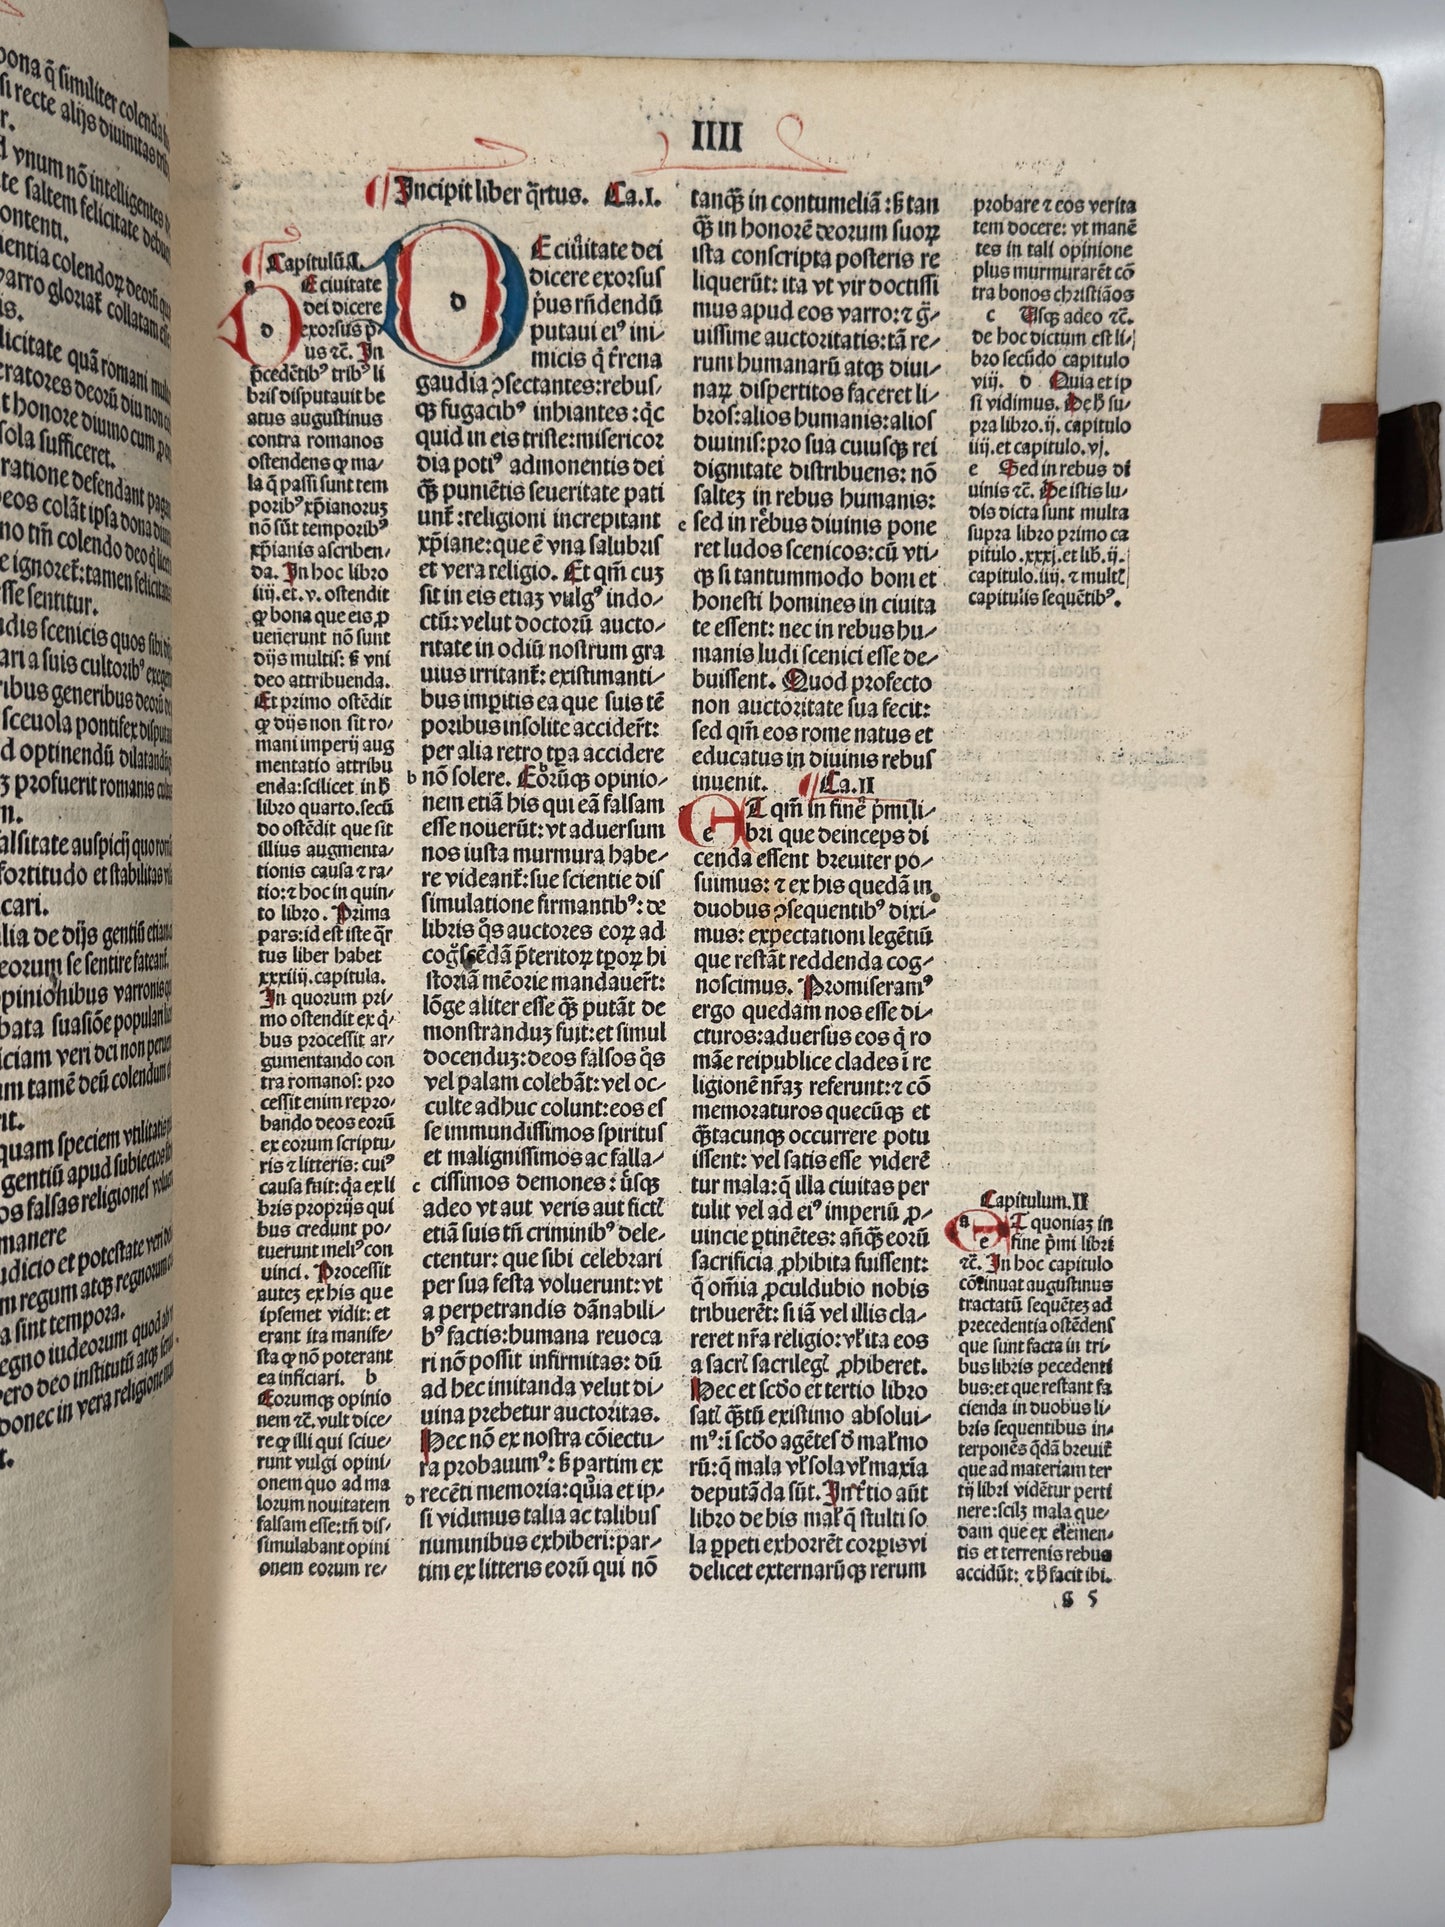 IIII
Incipit liber q̄rtus. Ca.I.
Capitulū.I.
a
D
d
E ciuitate
dei dicere
exorsus p̄-
us ⁊c̄. In
p̄cedētibꝰ tribꝰ li
bris disputauit be
atus augustinus
contra romanos
ostendens ꝙ ma-
la q̄ passi sunt tem
poribꝰ xp̄ianoruꝫ
nō sūt temporibꝰ
xp̄ianis ascriben/
da. In hoc libro
iiij.et.v. ostendit
ꝙ bona que eis ꝓ
uenerunt nō sunt
dijs multis: ꝫ vni
deo attribuenda.
Et primo ostēdit
ꝙ dijs non sit ro/
mani imperij aug
mentatio attribu
enda:scilicet in ħ
libro quarto.secū
do ostēdit que sit
illius augmenta/
tionis causa ⁊ ra/
tio:⁊ hoc in quin/
to libro. Prima
pars:id est iste q̄r
tus liber habet
xxxiiij.capitula.
In quorum pri/
mo ostendit ex q̄/
bus processit ar/
gumentando con
tra romanos: pro
cessit enim repro/
bando deos eorū
ex eorum scriptu/
ris ⁊ litteris: cuiꝰ
causa fuit: q̄a ex li
bris proprijs qui
bus credunt po/
tuerunt meliꝰ con
uinci. Processit
auteꝫ ex his que
ipsemet vidit: et
erant ita manife/
sta ꝙ nō poterant
ea inficiari. b
Eorumqꝫ opinio
nem ⁊c̄. vult dice/
re ꝙ illi qui sciue/
runt vulgi opini/
onem quo ad ma
lorum nouitatem
falsam esse:tn̄ dis/
simulabant opini
onem eorum re/
D
d
E ciuitate dei
dicere exorsus
p̄us rn̄dendū
putaui eiꝰ ini/
micis q̄ t̄rena
gaudia ↄsectantes:rebus/
qꝫ fugacibꝰ inhiantes :q̄c
quid in eis triste:misericor
dia potiꝰ admonentis dei
qꝫ̄ puniētis seueritate pati
unt̄ :religioni increpitant
xp̄iane:que ē vna salubris
et vera religio. Et qm̄ cuꝫ
sit in eis etiaꝫ vulgꝰ indo/
ctū:velut doctorū aucto/
ritate in odiū nostrum gra
uius irritant̄: existimanti/
bus imp̱itis ea que suis tē
poribus insolite accider̄t:
per alia retro tp̄a accidere
b nō solere. Eorūqꝫ opinio/
nem etiā his qui eā falsam
esse nouerūt: vt aduersum
nos iusta murmura habe/
re videant̄:sue scientie dis
simulatione firmantibꝰ: de
libris q̄s auctores eoꝝ ad
cog̊scēdā p̄teritoꝝ tp̄oꝝ hi
storiā mēorie mandauer̄t:
lōge aliter esse qꝫ̄ putāt de
monstranduꝫ fuit:et simul
docenduꝫ:deos falsos q̄s
vel palam colebāt: vel oc/
culte adhuc colunt:eos es
se immundissimos spiritus
et malignissimos ac falla/
c cissimos demones : vsqꝫ
adeo vt aut veris aut fictꝭ
etiā suis tn̄ criminibꝰ dele/
ctentur: que sibi celebrari
per sua festa voluerunt:vt
a perpetrandis dānabili/
bꝰ factis:humana reuoca
ri nō possit infirmitas: dū
ad hec imitanda velut di/
uina prebetur auctoritas.
Hec nō ex nostra cōiectu/
ra probauimꝰ: ꝫ partim ex
d recēti memoria:quia et ip/
si vidimus talia ac talibus
numinibus exhiberi:par/
tim ex litteris eorū qui nō
tanqꝫ̄ in contumeliā :ꝫ tan
qꝫ̄ in honorē deorum suoꝝ
ista conscripta posteris re
liquerūt: ita vt vir doctissi
mus apud eos varro:⁊ g̈/
uissime auctoritatis:tā re/
rum humanarū atqꝫ diui/
naꝝ dispertitos faceret li/
bros:alios humanis:alios
diuinis:pro sua cuiusqꝫ rei
dignitate distribuens: nō
salteꝫ in rebus humanis:
e sed in rebus diuinis pone
ret ludos scenicos:cū vti/
qꝫ si tantummodo boni et
honesti homines in ciuita
te essent: nec in rebus hu/
manis ludi scenici esse de/
buissent. Quod profecto
non auctoritate sua fecit:
sed qm̄ eos rome natus et
educatus in diuinis rebus
inuenit. Ca.II
E
e
T qm̄ in fine p̄mi li/
bri que deinceps di
cenda essent breuiter po/
suimus: ⁊ ex his quedā in
duobus ↄsequentibꝰ dixi/
mus: expectationi legētiū
que restāt reddenda cog/
noscimus. Promiseramꝰ
ergo quedam nos esse di/
cturos:aduersus eos q̄ ro
māe reipublice clades ī re
ligionē nr̄aꝫ referunt:⁊ cō
memoraturos quecūqꝫ et
qꝫ̄tacunqꝫ occurrere potu
issent: vel satis esse viderē
tur mala:q̄ illa ciuitas per
tulit vel ad eiꝰ imperiū ꝓ/
uincie p̱tinētes: an̄qꝫ̄ eorū
sacrificia ꝓhibita fuissent:
q̄ om̄ia ꝓculdubio nobis
tribuerēt: si iā vel illis cla/
reret nr̄a religio: vl̕ ita eos
a sacrꝭ sacrilegꝭ ꝓhiberet.
Hec et scd̄o et tertio libro
satꝭ qꝫ̄tū existimo absolui/
mꝰ:ī scd̄o agētes d̄ mal̕ mo
rū:q̄ mala vl̕ sola vl̕ maxīa
deputāda sūt. In t̄tio aūt
libro de his mal̕ q̄ stulti so
la ꝑpeti exhorrēt corꝑis vi
delicet externarūqꝫ rerum
probare ⁊ eos verita
tem docere: vt manē
tes in tali opinione
plus murmurarēt cō
tra bonos christiāos
c Usqꝫ adeo ⁊c̄.
de hoc dictum est li/
bro secūdo capitulo
viij. d Quia et ip
si vidimus. De ħ su/
pra libro.ij. capitulo
iiij.et capitulo.vj.
e Sed in rebus di
uinis ⁊c̄. De istis lu/
dis dicta sunt multa
supra libro primo ca
pitulo.xxxj.et lib̄.ij.
capitulo.iiij. ⁊ multꝭ
capitulis sequētibꝰ.
Capitulum.II
a
E
e
T quoniaꝫ in
fine p̄mi libri
⁊c̄. In hoc capitulo
cōtinuat augustinus
tractatū sequēteꝫ ad
precedentia ostēdens
que sunt facta in tri/
bus libris pecedenti
bus:et que restant fa
cienda in duobus li/
bris sequentibus in/
terponēs q̄dā breuit̄
que ad materiam ter
tij libri vidētur perti
nere:scilꝫ mala que/
dam que ex elemen/
tis et terrenis rebus
accidūt: ⁊ ħ facit ibi.
g 5